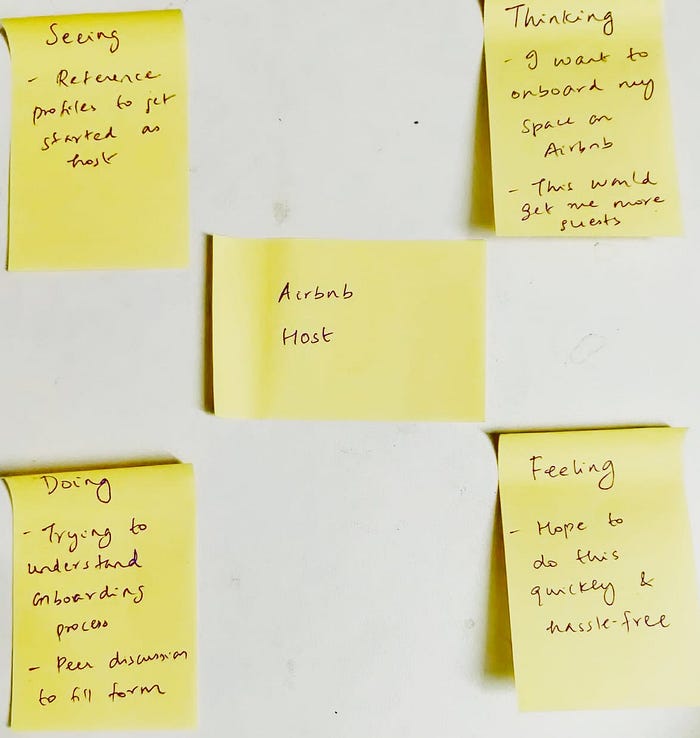 Seeing
- Reference
profiles to get
started as
host
Thinking
- I want to
onboard my
space on
Airbnb
- This would
get me more
guests
Airbnb
Host
Doing
- Trying to
understand
onboarding
process
- Peer discussion
to fill form
Feeling
- Hope to
do this
quickey &
hassle-free